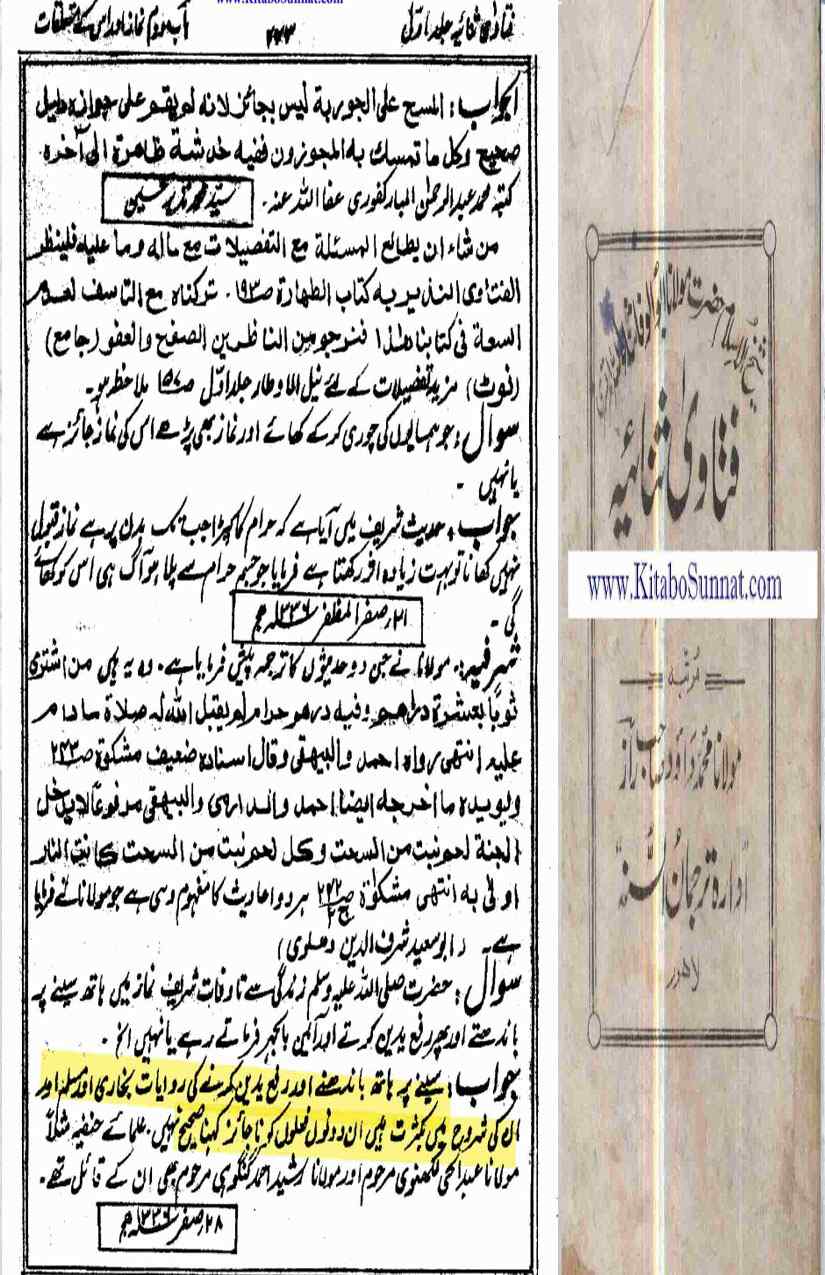 www.KitaboSunnat.com
فتاویٰ ثنائیہ جلد اوّل
۴۴۳
باب دوم نماز اور اس کے متعلقات
جواب: المسح علی الجوربة ليس بجائز لانه لم يقم علی جوازه دليل
صحيح وكل ما تمسك به المجوزون ففيه خدشة ظاهرة الی آخره
کتبہ محمد عبدالرحمٰن المبارکفوری عفا اللہ عنہ۔ سید محمد نذیر حسین
من شاء ان يطالع المسئلة مع التفصيلات مع ماله وما عليه فلينظر
الفتاوی النذيرية كتاب الطهارة ص۱۹۳۔ تركناه مع التاسف لعدم
السعة فی كتابنا هذا فنرجو من الناظرين الصفح والعفو (جامع)
(نوٹ) مزید تفصیلات کے لئے نیل الاوطار جلد اوّل ص۱۵۷ ملاحظہ ہو۔
سوال: جو ہمسایوں کی چوری کرکے کھائے اور نماز بھی پڑھے اس کی نماز جائز ہے
یا نہیں ۔
جواب۔ حدیث شریف میں آیا ہے کہ حرام کا کپڑا جب تک بدن پر ہے نماز قبول
نہیں کھانا تو بہت زیادہ اثر رکھتا ہے فرمایا جو جسم حرام سے پلا ہو آگ ہی اس کو کھائے
گی۔
۲۱؍ صفر المظفر ۱۳۳۶ھ
شرفیہ:۔ مولانا نے جن دو حدیثوں کا ترجمہ پیش فرمایا ہے۔ وہ یہ ہیں من اشتری
ثوبا بعشرة دراهم وفيه درهم حرام لم يقبل الله له صلاة مادام
عليه انتهی رواه احمد والبيهقی وقال اسناده ضعيف مشكوة ص۲۴۳
ويؤيده ما اخرجه ايضا احمد والدارمی والبيهقی مرفوعا لا يدخل
الجنة لحم نبت من السحت وكل لحم نبت من السحت كانت النار
اولی به انتهی مشکوٰة ص۲۴۲ ج۲ ہر دو احادیث کا مفہوم وہی ہے جو مولانا نے فرمایا
ہے۔ (ابو سعید شرف الدین دھلوی)
سوال: حضرت صلی اللہ علیہ وسلم زندگی سے تا وفات شریف نماز میں ہاتھ سینے پر
باندھتے اور پھر رفع یدین کرتے اور آمین بالجہر فرماتے رہے یا نہیں الخ۔
جواب: سینے پر ہاتھ باندھنے اور رفع یدین کرنے کی روایات بخاری اور مسلم اور
ان کی شروح میں بکثرت ہیں ان دونوں فعلوں کو ناجائز کہنا صحیح نہیں۔ علمائے حنفیہ مثلاً
مولانا عبدالحی لکھنوی مرحوم اور مولانا رشید احمد گنگوہی مرحوم بھی ان کے قائل تھے۔
۲۸؍ صفر ۱۳۳۶ھ
شیخ الاسلام حضرت مولانا ابوالوفا ثناء اللہ امرتسری
فتاویٰ ثنائیہ
www.KitaboSunnat.com
مرتبہ
مولانا محمد داؤد صاحب راز
ادارہ ترجمان السنہ
لاہور